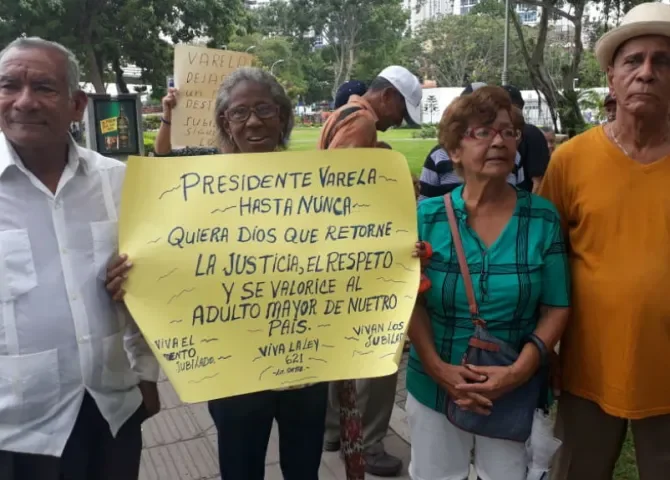 VARELA
DEJAS
EST
PRESIDENTE VARELA
HASTA NUNCA
QUIERA DIOS QUE RETORNE
LA JUSTICIA, EL RESPETO
Y SE VALORICE AL
ADULTO MAYOR DE NUETRO
PAÍS.
VIVA EL
JUBILADO
VIVA LA LEY
621
VIVAN LOS
JUBILADOS